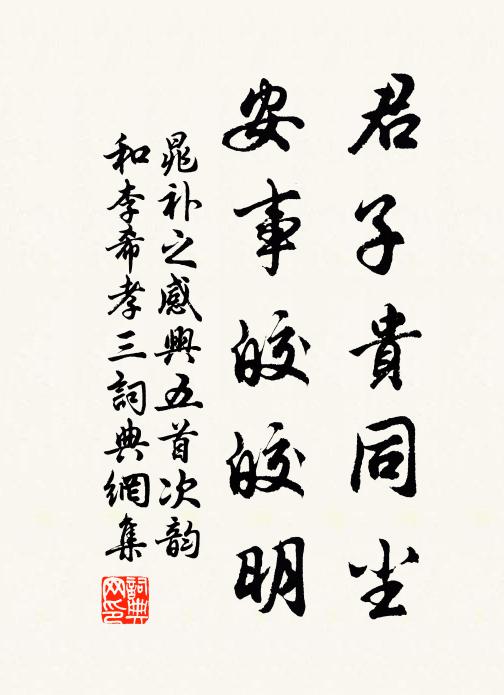 君子貴同尘
安事皎皎明
晁补之感興五首次韵
和李希孝三詞典網集
詞典网印